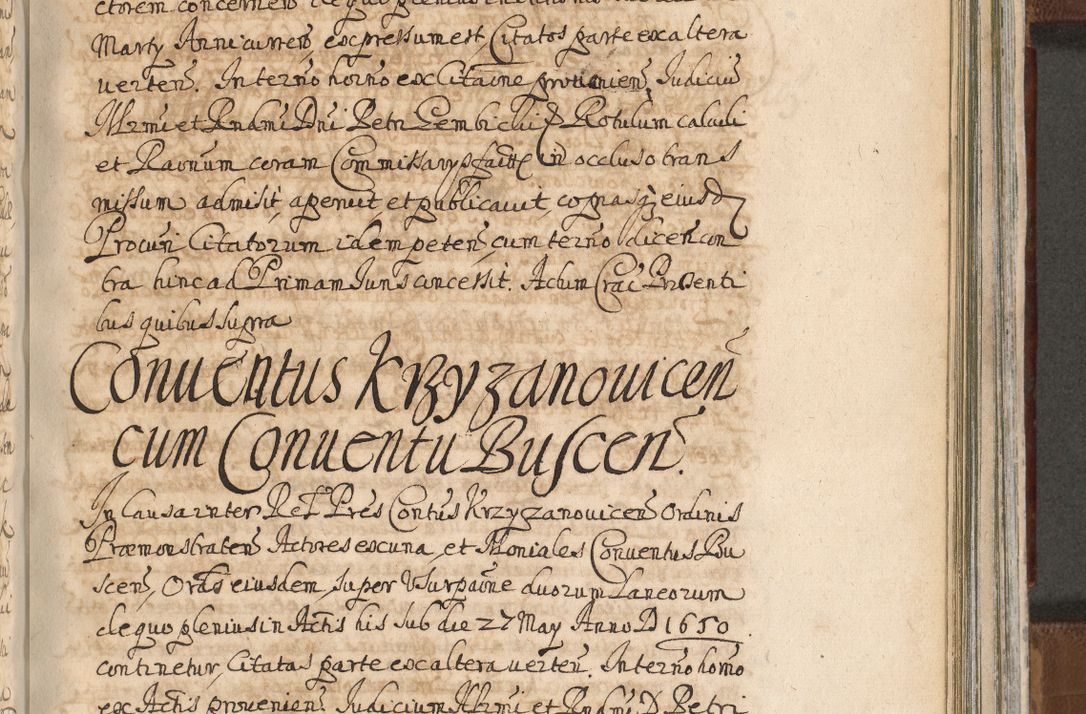 Martÿ Anni curren̄, expressum est, Citatos parte ex altera
verten̄. In termo horno ex Cita͠one provenien̄, Judiciu͠
Illr͠mi et Rndm͠i Dn͠i Petri Gembicki Rotulum calculi
et Rao͠num coram Commissarys in occluso trans
missum admisit, aperuit, et publicavit, eiusd
Procur͠i Citatorum idem peten̄, cum termo dicen̄ con
tra hinc ad Primam Juris concessit. Actum Crac͠ Prӕsenti
bus quibus supra
Conuentus Krzyzanouicen̄
cum Conuentu Buscen̄.
In Causa inter Rel͠ Pres Contus Krzyzanouicen̄ Ordinis
Prӕmonstraten̄ Actores ex una, et Moniales Conuentus Bu
scen̄, Ord͠s eiusdem, super Usurpa͠one duorum Laneorum
de quo plenius in Actis his sub die 27 May Anno D 1650.
continetur, Citatas parte ex altera verten̄. In termo horno
ex Actis provenien̄, Judicium Illr͠mi et Rndm͠i D. Petri